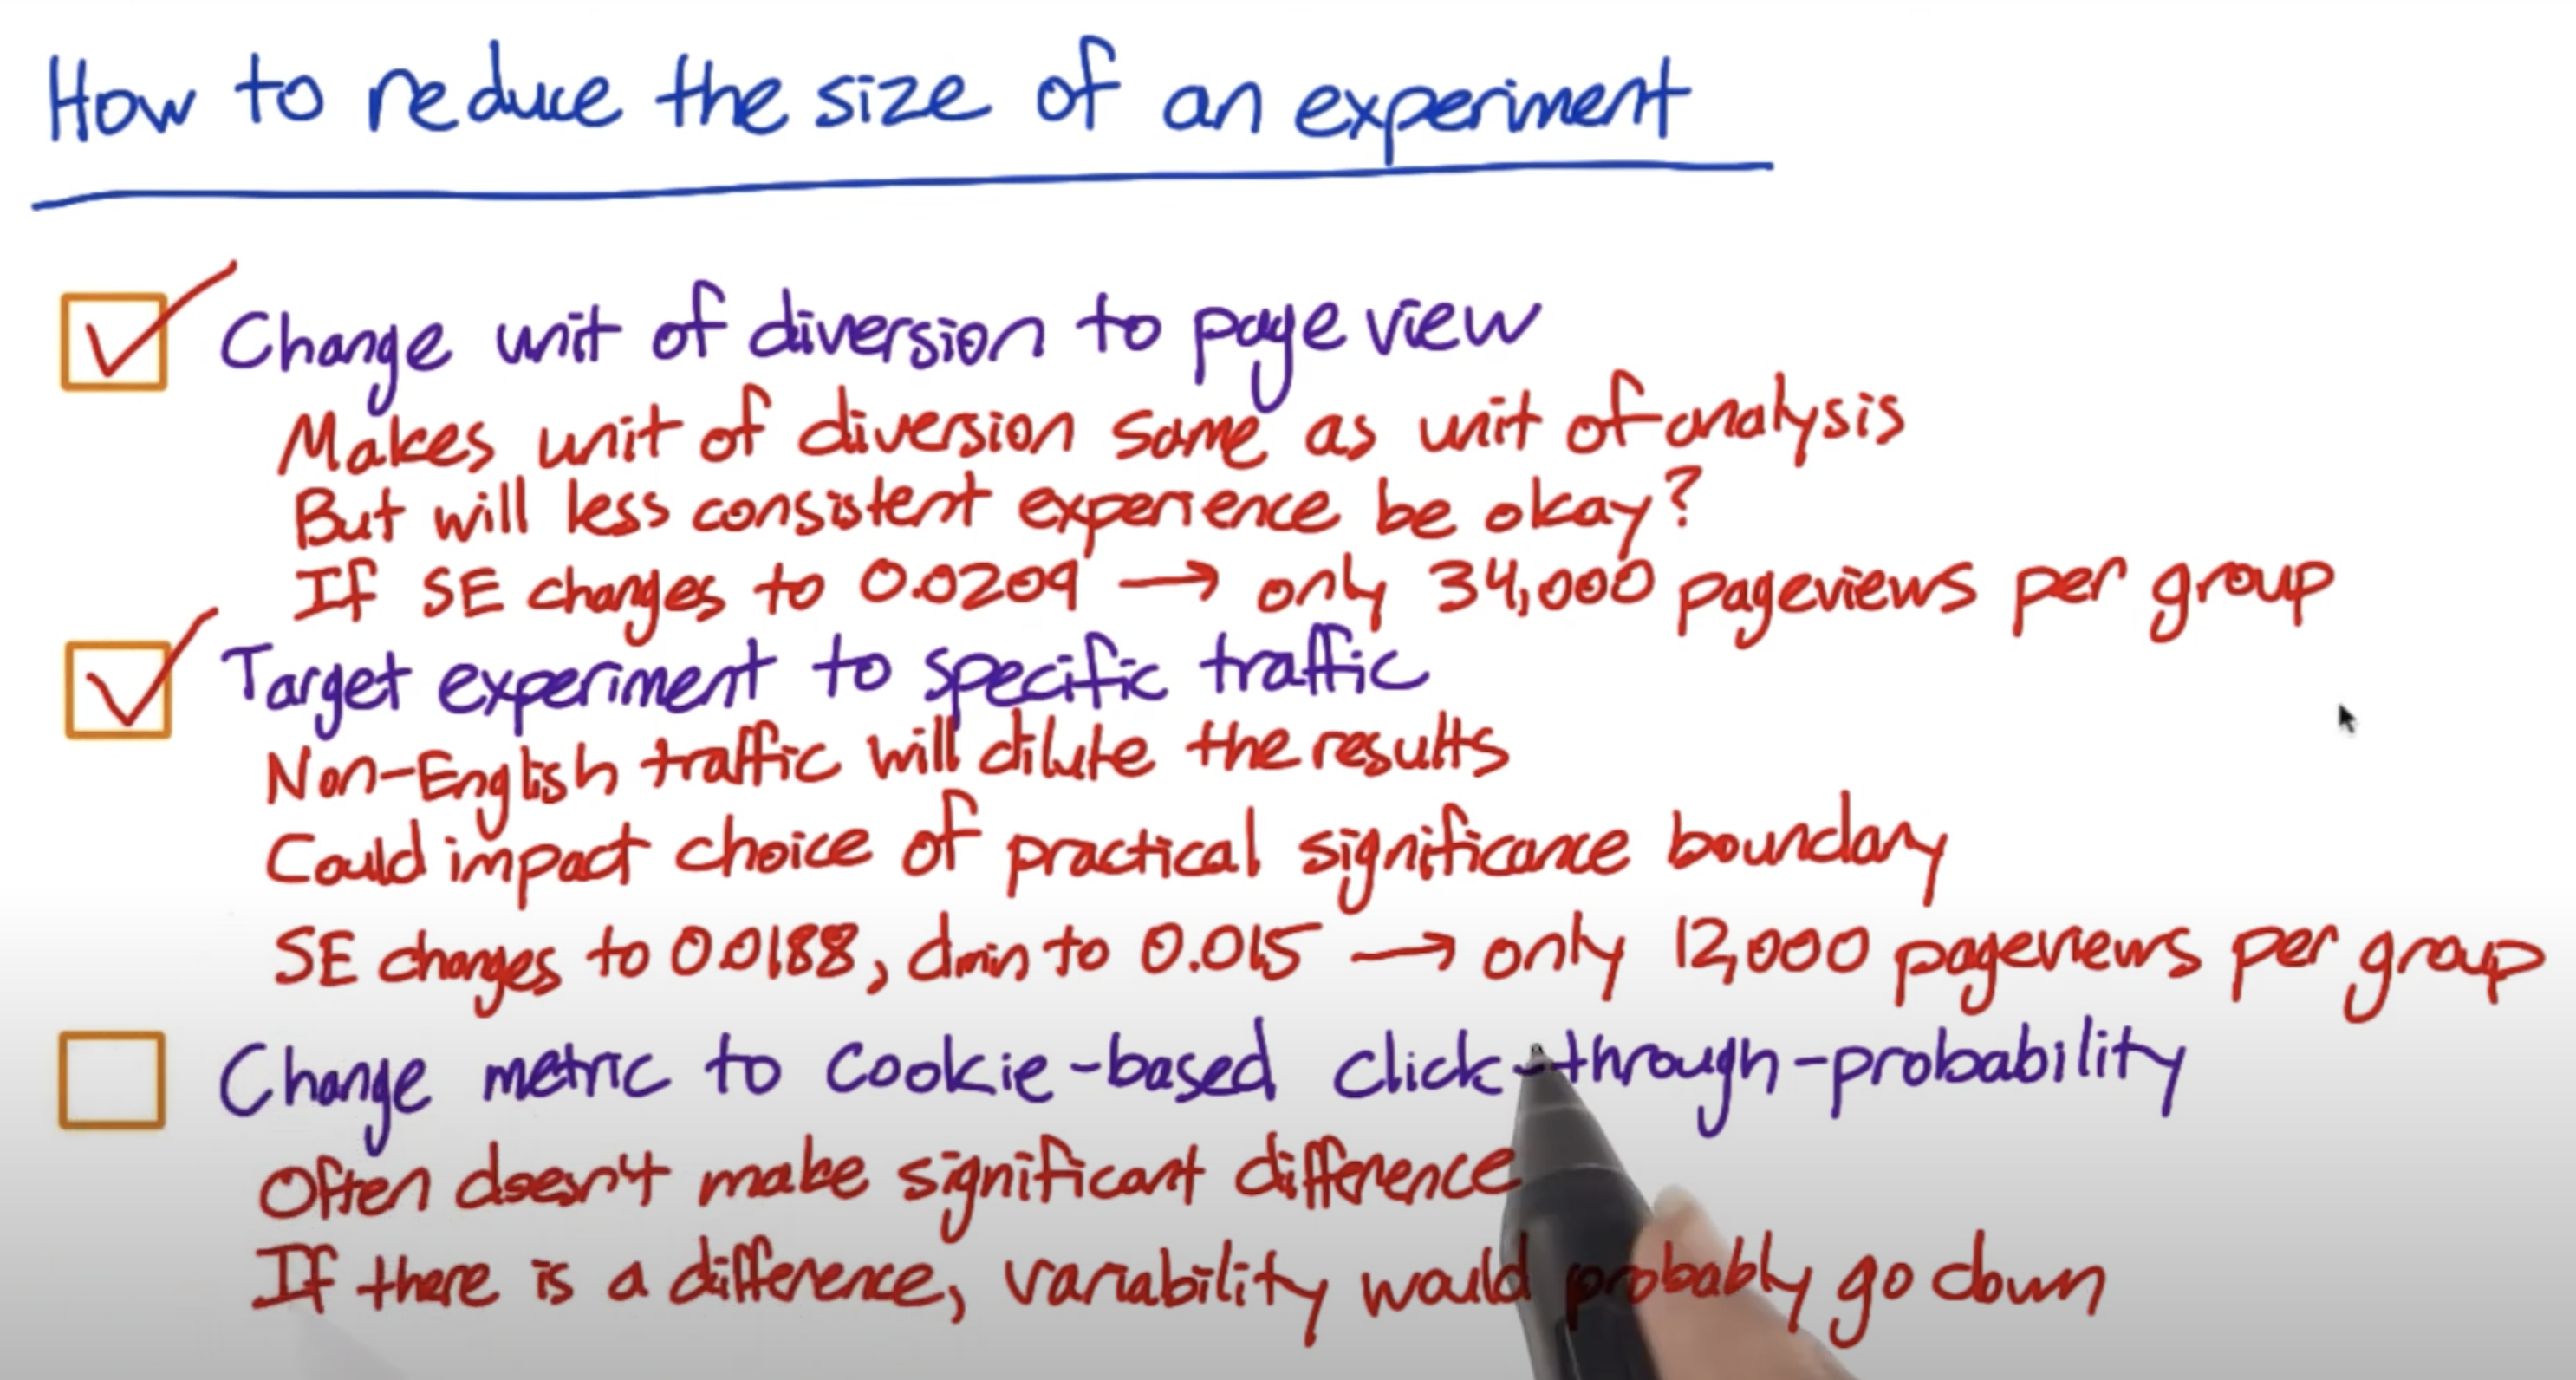 How to reduce the size of an experiment
Change unit of diversion to page view
Makes unit of diversion same as unit of analysis
But will less consistent experience be okay?
If SE changes to 0.0209 → only 34,000 pageviews per group
Target experiment to specific traffic
Non-English traffic will dilute the results
Could impact choice of practical significance boundary
SE changes to 0.0188, dmin to 0.015 → only 12,000 pageviews per group
Change metric to cookie-based click-through-probability
Often doesn't make significant difference
If there is a difference, variability would probably go down